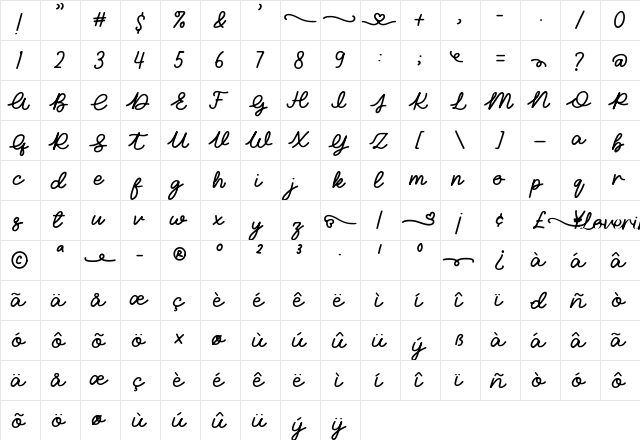 ! " # $ % & ' + , - . / 0
1 2 3 4 5 6 7 8 9 : ; = ? @
a B C D E F G H I J K L M N O P
Q R S T U V W X Y Z [ \ ] _ a b
c d e f g h i j k l m n o p q r
s t u v w x y z | ¡ ¢ £ ¥
© ª - ® º 2 3 · 1 0 ¿ à á â
ã ä å æ ç è é ê ë ì í î ï d ñ ò
ó ô õ ö × ø ù ú û ü ý ß à á â ã
ä å æ ç è é ê ë ì í î ï ñ ò ó ô
õ ö ø ù ú û ü ý ÿ